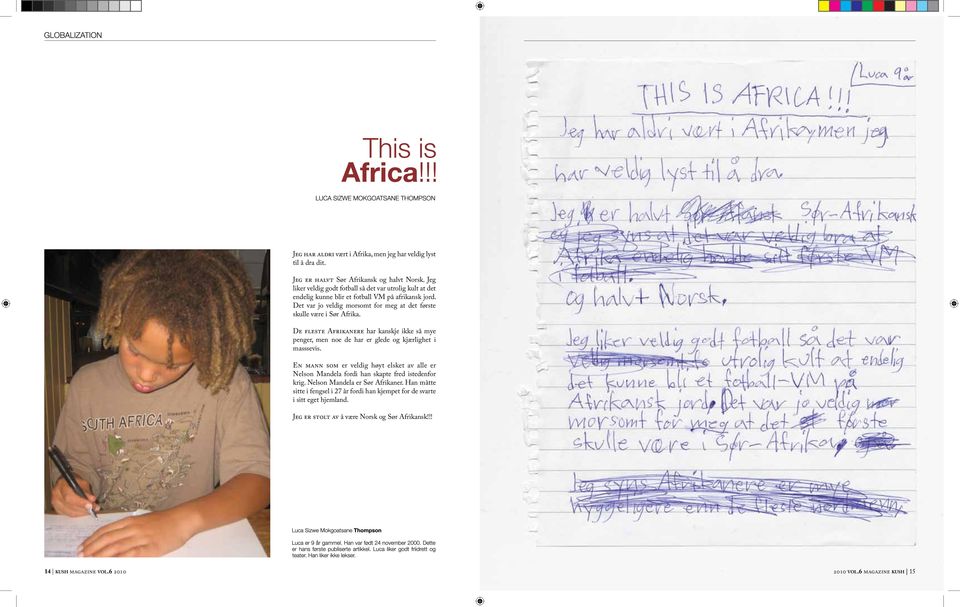 GLOBALIZATION
This is
Africa!!!
LUCA SIZWE MOKGOATSANE THOMPSON
Jeg har aldri vært i Afrika, men jeg har veldig lyst
til å dra dit.
Jeg er halvt Sør Afrikansk og halvt Norsk. Jeg
liker veldig godt fotball så det var utrolig kult at det
endelig kunne blir et fotball VM på afrikansk jord.
Det var jo veldig morsomt for meg at det første
skulle være i Sør Afrika.
De fleste Afrikanere har kanskje ikke så mye
penger, men noe de har er glede og kjærlighet i
masssevis.
En mann som er veldig høyt elsket av alle er
Nelson Mandela fordi han skapte fred istedenfor
krig. Nelson Mandela er Sør Afrikaner. Han måtte
sitte i fengsel i 27 år fordi han kjempet for de svarte
i sitt eget hjemland.
Jeg er stolt av å være Norsk og Sør Afrikansk!!!
SOUTH AFRICA
Luca Sizwe Mokgoatsane Thompson
Luca er 9 år gammel. Han var født 24 november 2000. Dette
er hans første publiserte artikkel. Luca liker godt friidrett og
teater. Han liker ikke lekser.
14 | KUSH MAGAZINE VOL.6 2010
Luca 9 år
THIS IS AFRICA!!!
Jeg har aldri vært i Afrika, men jeg
har veldig lyst til å dra.
Jeg er halvt Sør-Afrikansk
og jeg syns at det var veldig bra at
Afrika endelig hadde sitt første VM
i fotball.
og halvt Norsk.
Jeg liker veldig godt fotball så det var
veldig utrolig kult at endelig
det kunne bli et fotball-VM på
Afrikansk jord. Det var jo veldig
morsomt for meg at det første
skulle være i Sør-Afrika.
Jeg syns Afrikanere er mye
hyggeligere enn de fleste nordmenn
2010 VOL.6 MAGAZINE KUSH | 15